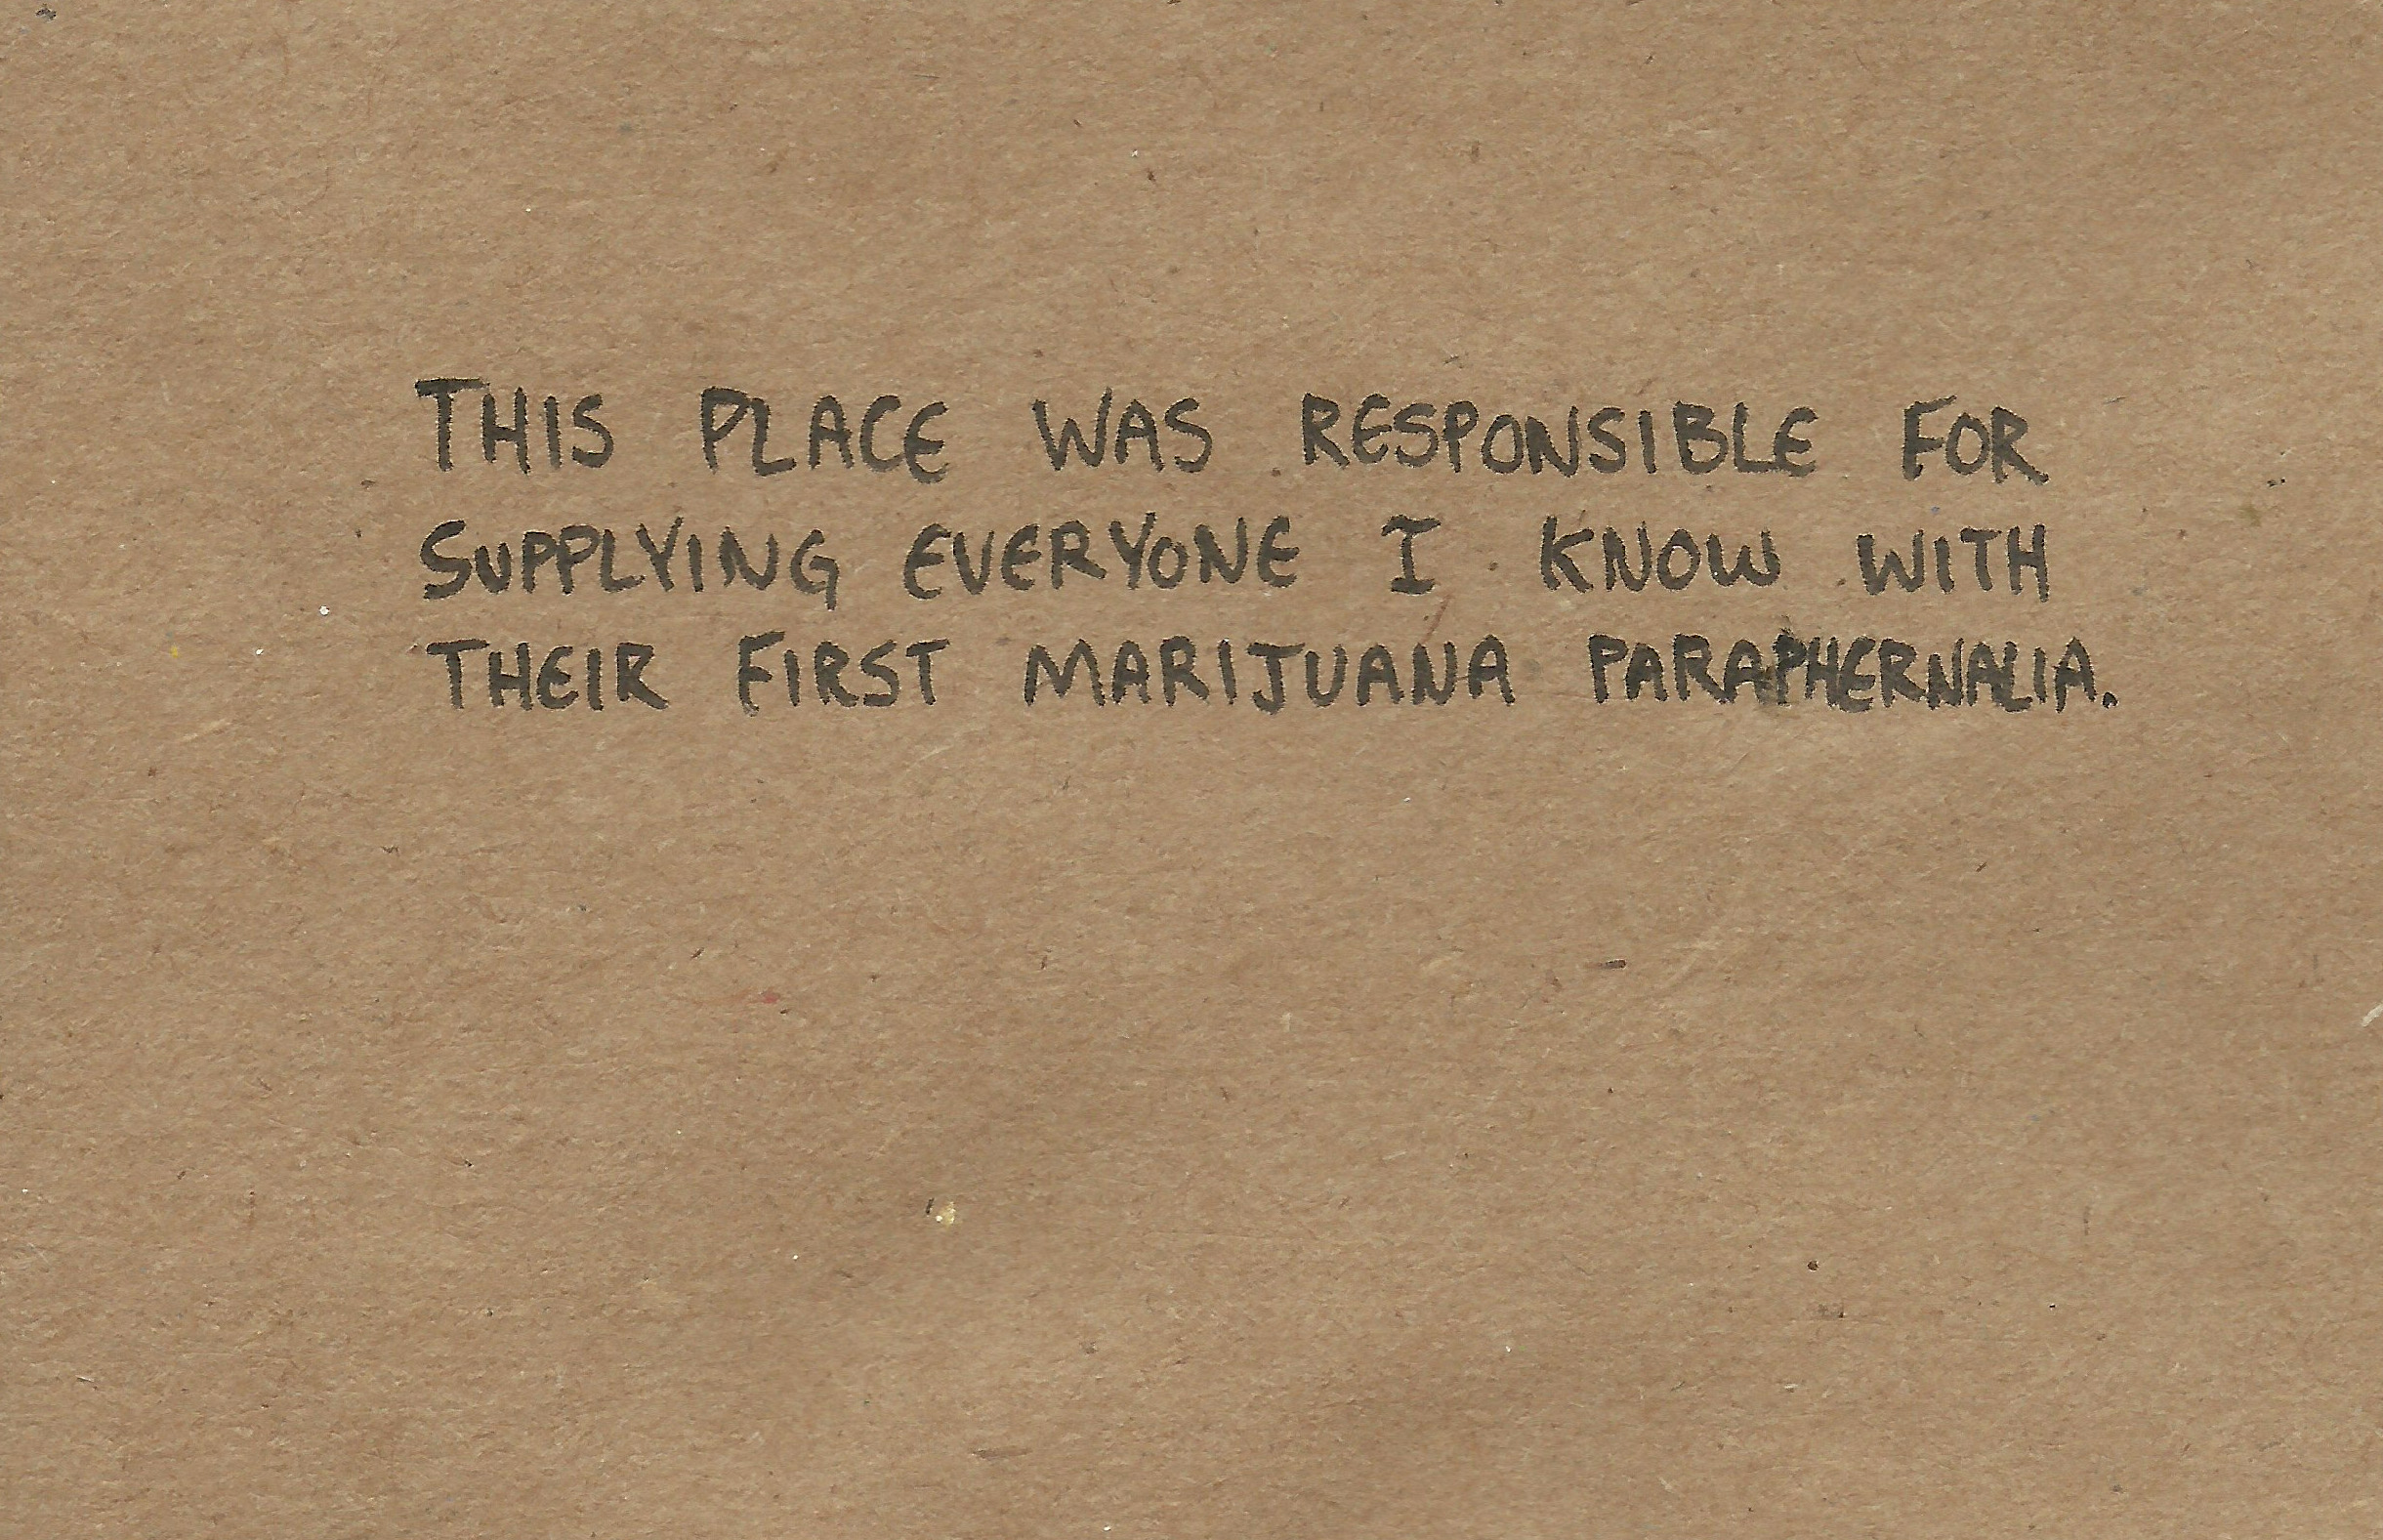 THIS PLACE WAS RESPONSIBLE FOR
SUPPLYING EVERYONE I KNOW WITH
THEIR FIRST MARIJUANA PARAPHERNALIA.